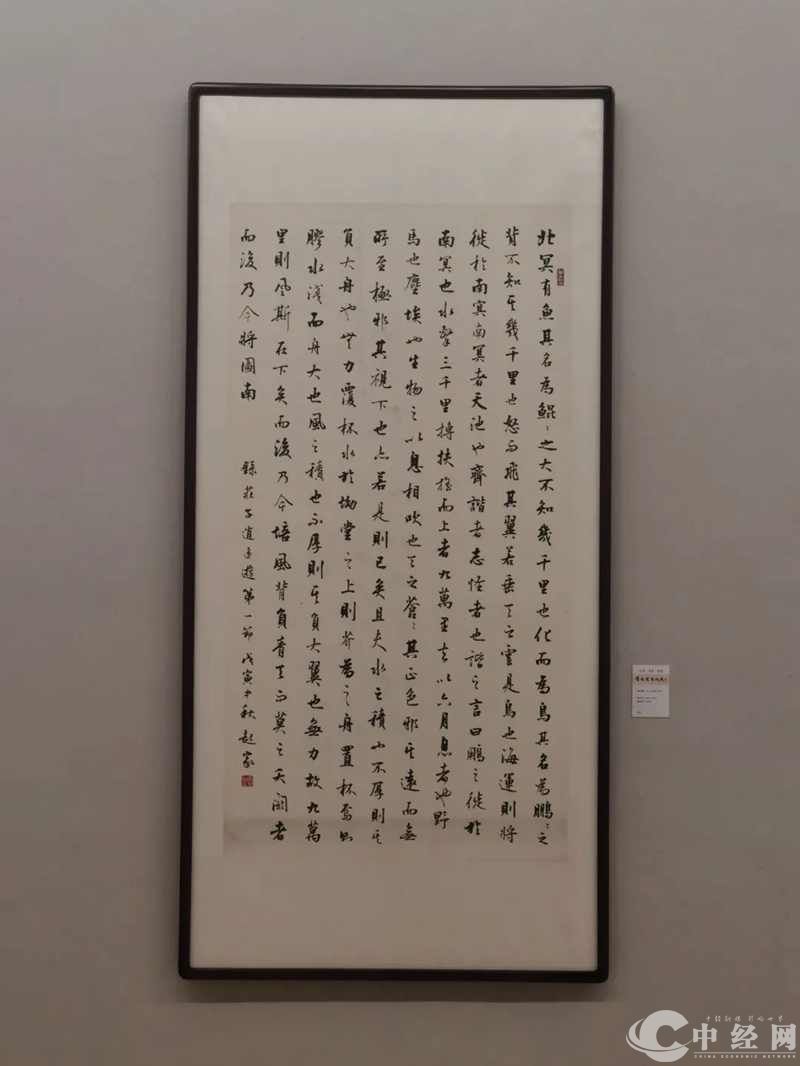 北冥有魚其名為鯤〻之大不知幾千里也化而為鳥其名為鵬〻之
背不知其幾千里也怒而飛其翼若垂天之雲是鳥也海運則將
徙於南冥南冥者天池也齊諧者志怪者也諧之言曰鵬之徙於
南冥也水擊三千里摶扶搖而上者九萬里去以六月息者也野
馬也塵埃也生物之以息相吹也天之蒼〻其正色邪其遠而無
所至極邪其視下也亦若是則已矣且夫水之積也不厚則其
負大舟也無力覆杯水於坳堂之上則芥為之舟置杯焉則
膠水淺而舟大也風之積也不厚則其負大翼也無力故九萬
里則風斯在下矣而後乃今培風背負青天而莫之夭閼者
而後乃今將圖南
錄莊子逍遙遊第一節戊寅中秋
中经网
CHINA ECONOMIC NETWORK